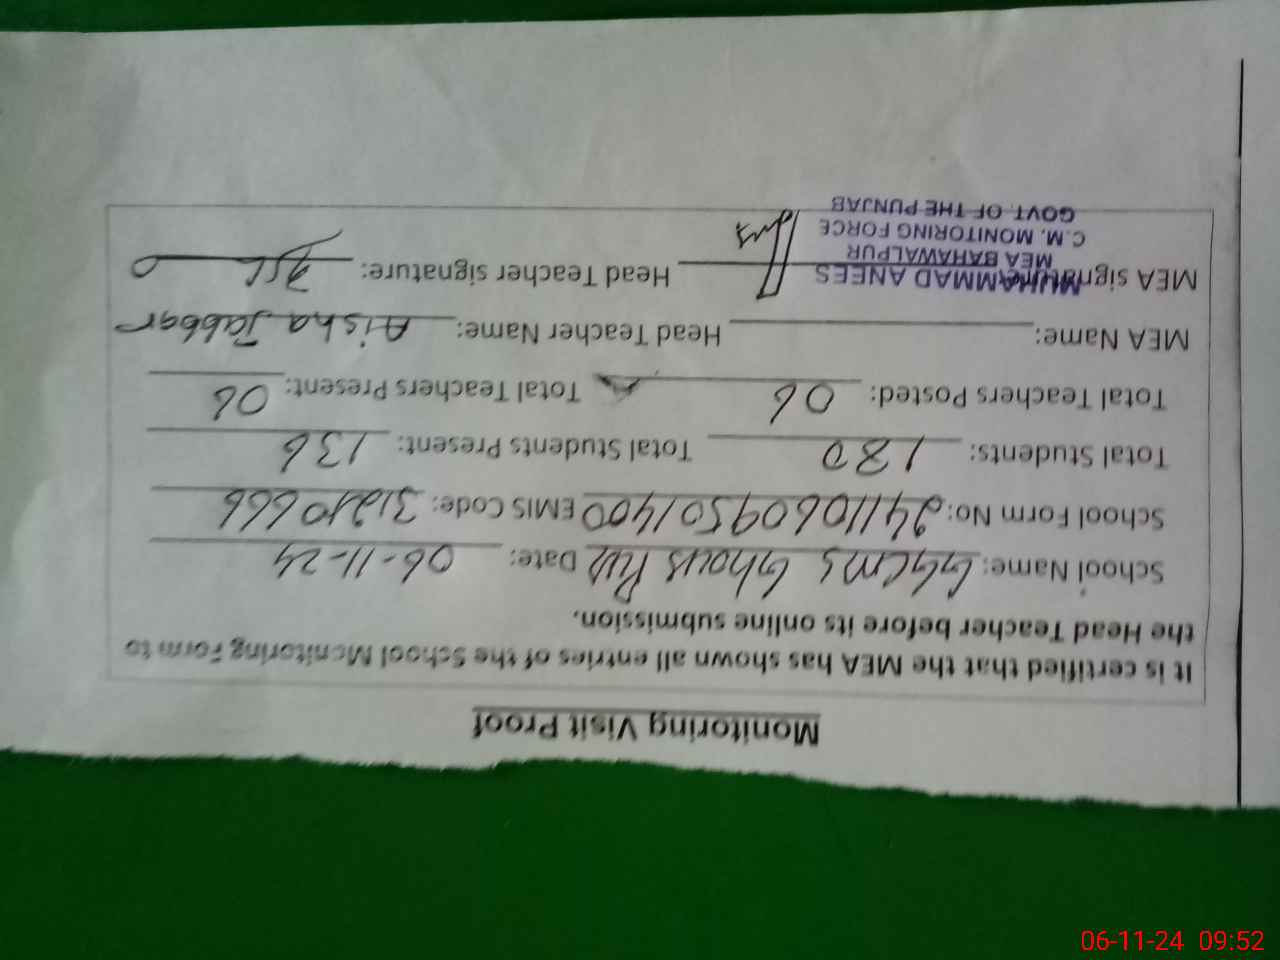 Monitoring Visit Proof
It is certified that the MEA has shown all entries of the School Monitoring Form to
the Head Teacher before its online submission.
School Name: GGCMS Ghous Pur Date: 06-11-24
School Form No: 24110609501400 EMIS Code: 31210666
Total Students: 180 Total Students Present: 136
Total Teachers Posted: 06 Total Teachers Present: 06
MEA Name: Head Teacher Name: Aisha Jabbar
MEA signature: Head Teacher signature:
MUHAMMAD ANEES
MEA BAHAWALPUR
C.M. MONITORING FORCE
GOVT. OF THE PUNJAB
06-11-24 09:52